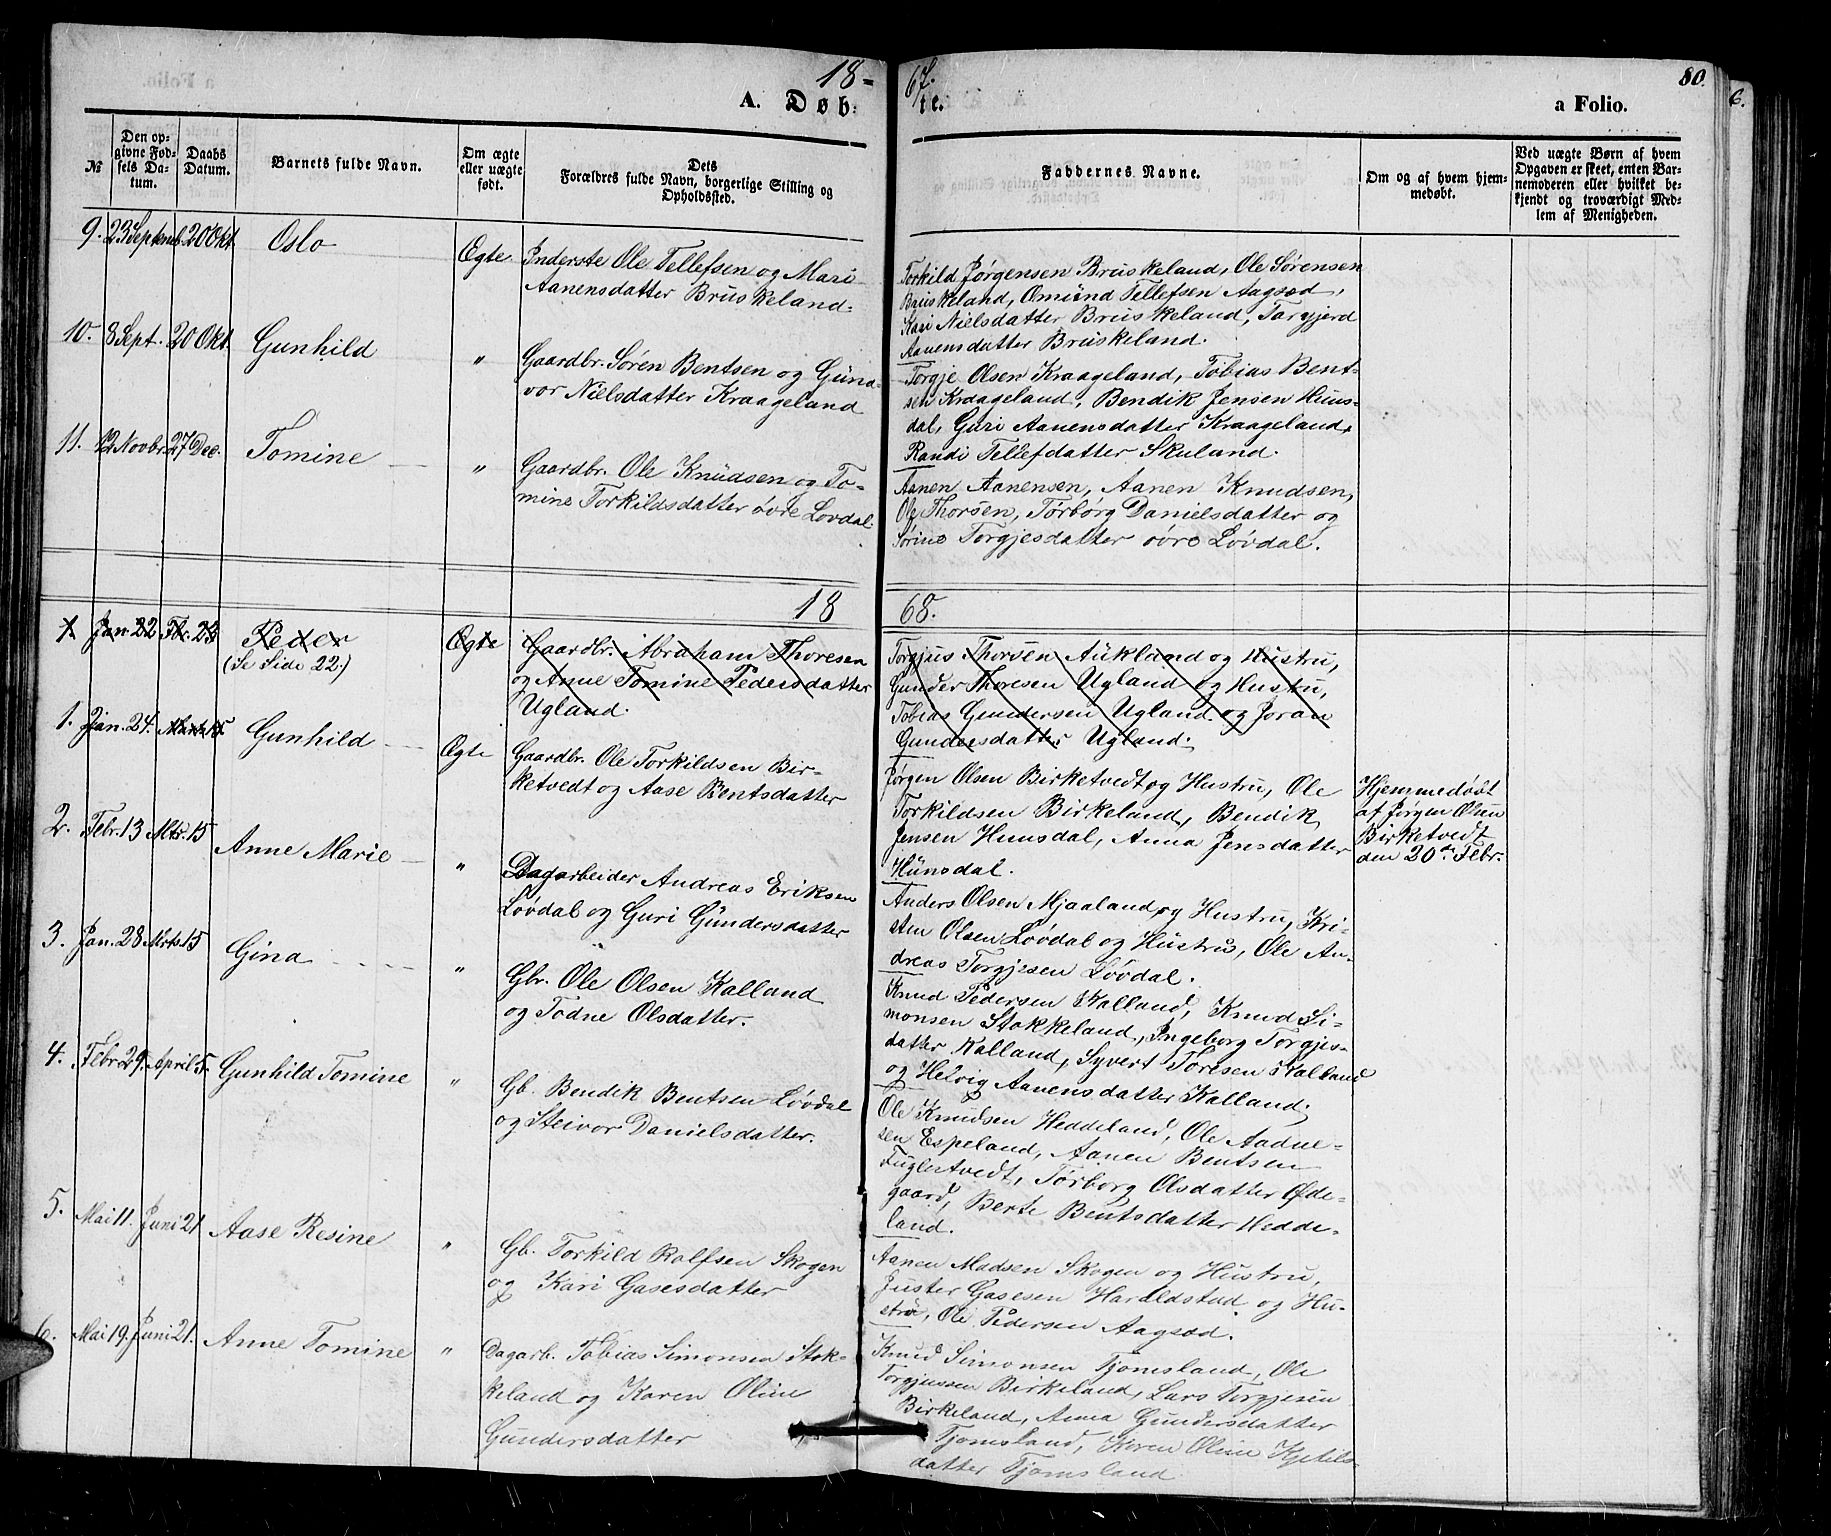 18-67.
80.
6.
A. Døbte.
a Folio.
№
Den opgivne Fødsels Datum.
Daabs Datum.
Barnets fulde Navn.
Om ægte eller uægte født.
Dets Forældres fulde Navn, borgerlige Stilling og Opholdssted.
Faddernes Navne.
Om og af hvem hjemmedøbt.
Ved uægte Børn af hvem Opgaven er skeet, enten Barnemoderen eller hvilket bekjendt og troværdigt Medlem af Menigheden.
9. 23 Septemb. 20 Okt. Oslo Ægte
Inderste Ole Tellefsen og Mari
Aanensdatter Bruskeland
Torkild Jørgensen Bruskeland, Ole Sørensen
Bruskeland, Omund Tellefsen Aagsod,
Kari Nielsdatter Bruskeland, Torgjerd
Aanensdatter Bruskeland.
10. 8 Sept. 20 Okt. Gunhild "
Gaardbr. Søren Bentsen og Gund-
vor Nielsdatter Kraageland
Torgje Olsen Kraageland, Tobias Bent-
sen Kraageland, Bendik Jensen Huns-
dal, Guri Aanensdatter Kraageland,
Randi Tellefdatter Skuland.
11. 12 Novbr. 27 Dec. Tomine "
Gaardbr. Ole Knudsen og To-
mine Torkildsdatter øvre Løvdal.
Aanen Aanensen, Aanen Knudsen,
Ole Thorsen, Torborg Danielsdatter og
Sørine Torgjesdatter øvre Løvdal.
1868.
1. Jan. 22 Fbr. 23 Peder Ægte
(Se Side 22.)
Gaardbr. Abraham Thoresen
og Anne Tomine Pedersdatter
Ugland.
Torgjus Thorsen Aukland og Hustru,
Gunder Thoresen Ugland og Hustru,
Tobias Gundersen Ugland og Joran
Gundersdatter Ugland.
1. Jan. 24. Marts 15 Gunhild Ægte
Gaardbr. Ole Torkildsen Bir-
ketvedt og Aase Bentsdatter
Jørgen Olsen Birketvedt og Hustru, Ole
Torkildsen Birkeland, Bendik
Jensen Hunsdal, Anna Jensdatter
Hunsdal.
Hjemmedøbt
af Jørgen Olsen
Birketvedt
den 20de Febr.
2. Febr. 13 Mts. 15 Anne Marie "
Dagarbeider Andreas Eriksen
Løvdal og Guri Gundersdatter
Anders Olsen Mjaaland og Hustru, Kri-
sten Olsen Løvdal og Hustru, Ole An-
dreas Torgjesen Løvdal.
3. Jan. 28 Mrts 15 Gina "
Gbr. Ole Olsen Kalland
og Todne Olsdatter.
Knud Pedersen Kalland, Knud Si-
monsen Stokkeland, Ingeborg Torgjes-
datter Kalland, Syvert Toresen Kalland
og Helvig Aanensdatter Kalland,
4. Febr. 29. April 5. Gunhild Tomine "
Gb. Bendik Bentsen Løvdal
og Steivor Danielsdatter.
Ole Knudsen Heddeland, Ole Aadne-
sen Espeland, Aanen Bentsen
Fuglestvedt, Torborg Olsdatter Øde-
gaard, Berte Bentsdatter Hedde-
land.
5. Mai 11. Juni 21. Aase Resine "
Gb. Torkild Rolfsen Skogen
og Kari Gasesdatter
Aanen Madsen Skogen og Hustru,
Juster Gasesen Haraldstad og Hu-
stru, Ole Pedersen Aagsod.
6. Mai 19. Juni 21. Anne Tomine "
Dagarb. Tobias Simonsen Stok-
keland og Karen Oline
Gundersdatter
Knud Simonsen Tjomsland, Ole
Torgjussen Birkeland, Lars Torgjesen
Birkeland, Anna Gundersdatter
Tjomsland, Karen Oline Kjetils-
datter Tjomsland